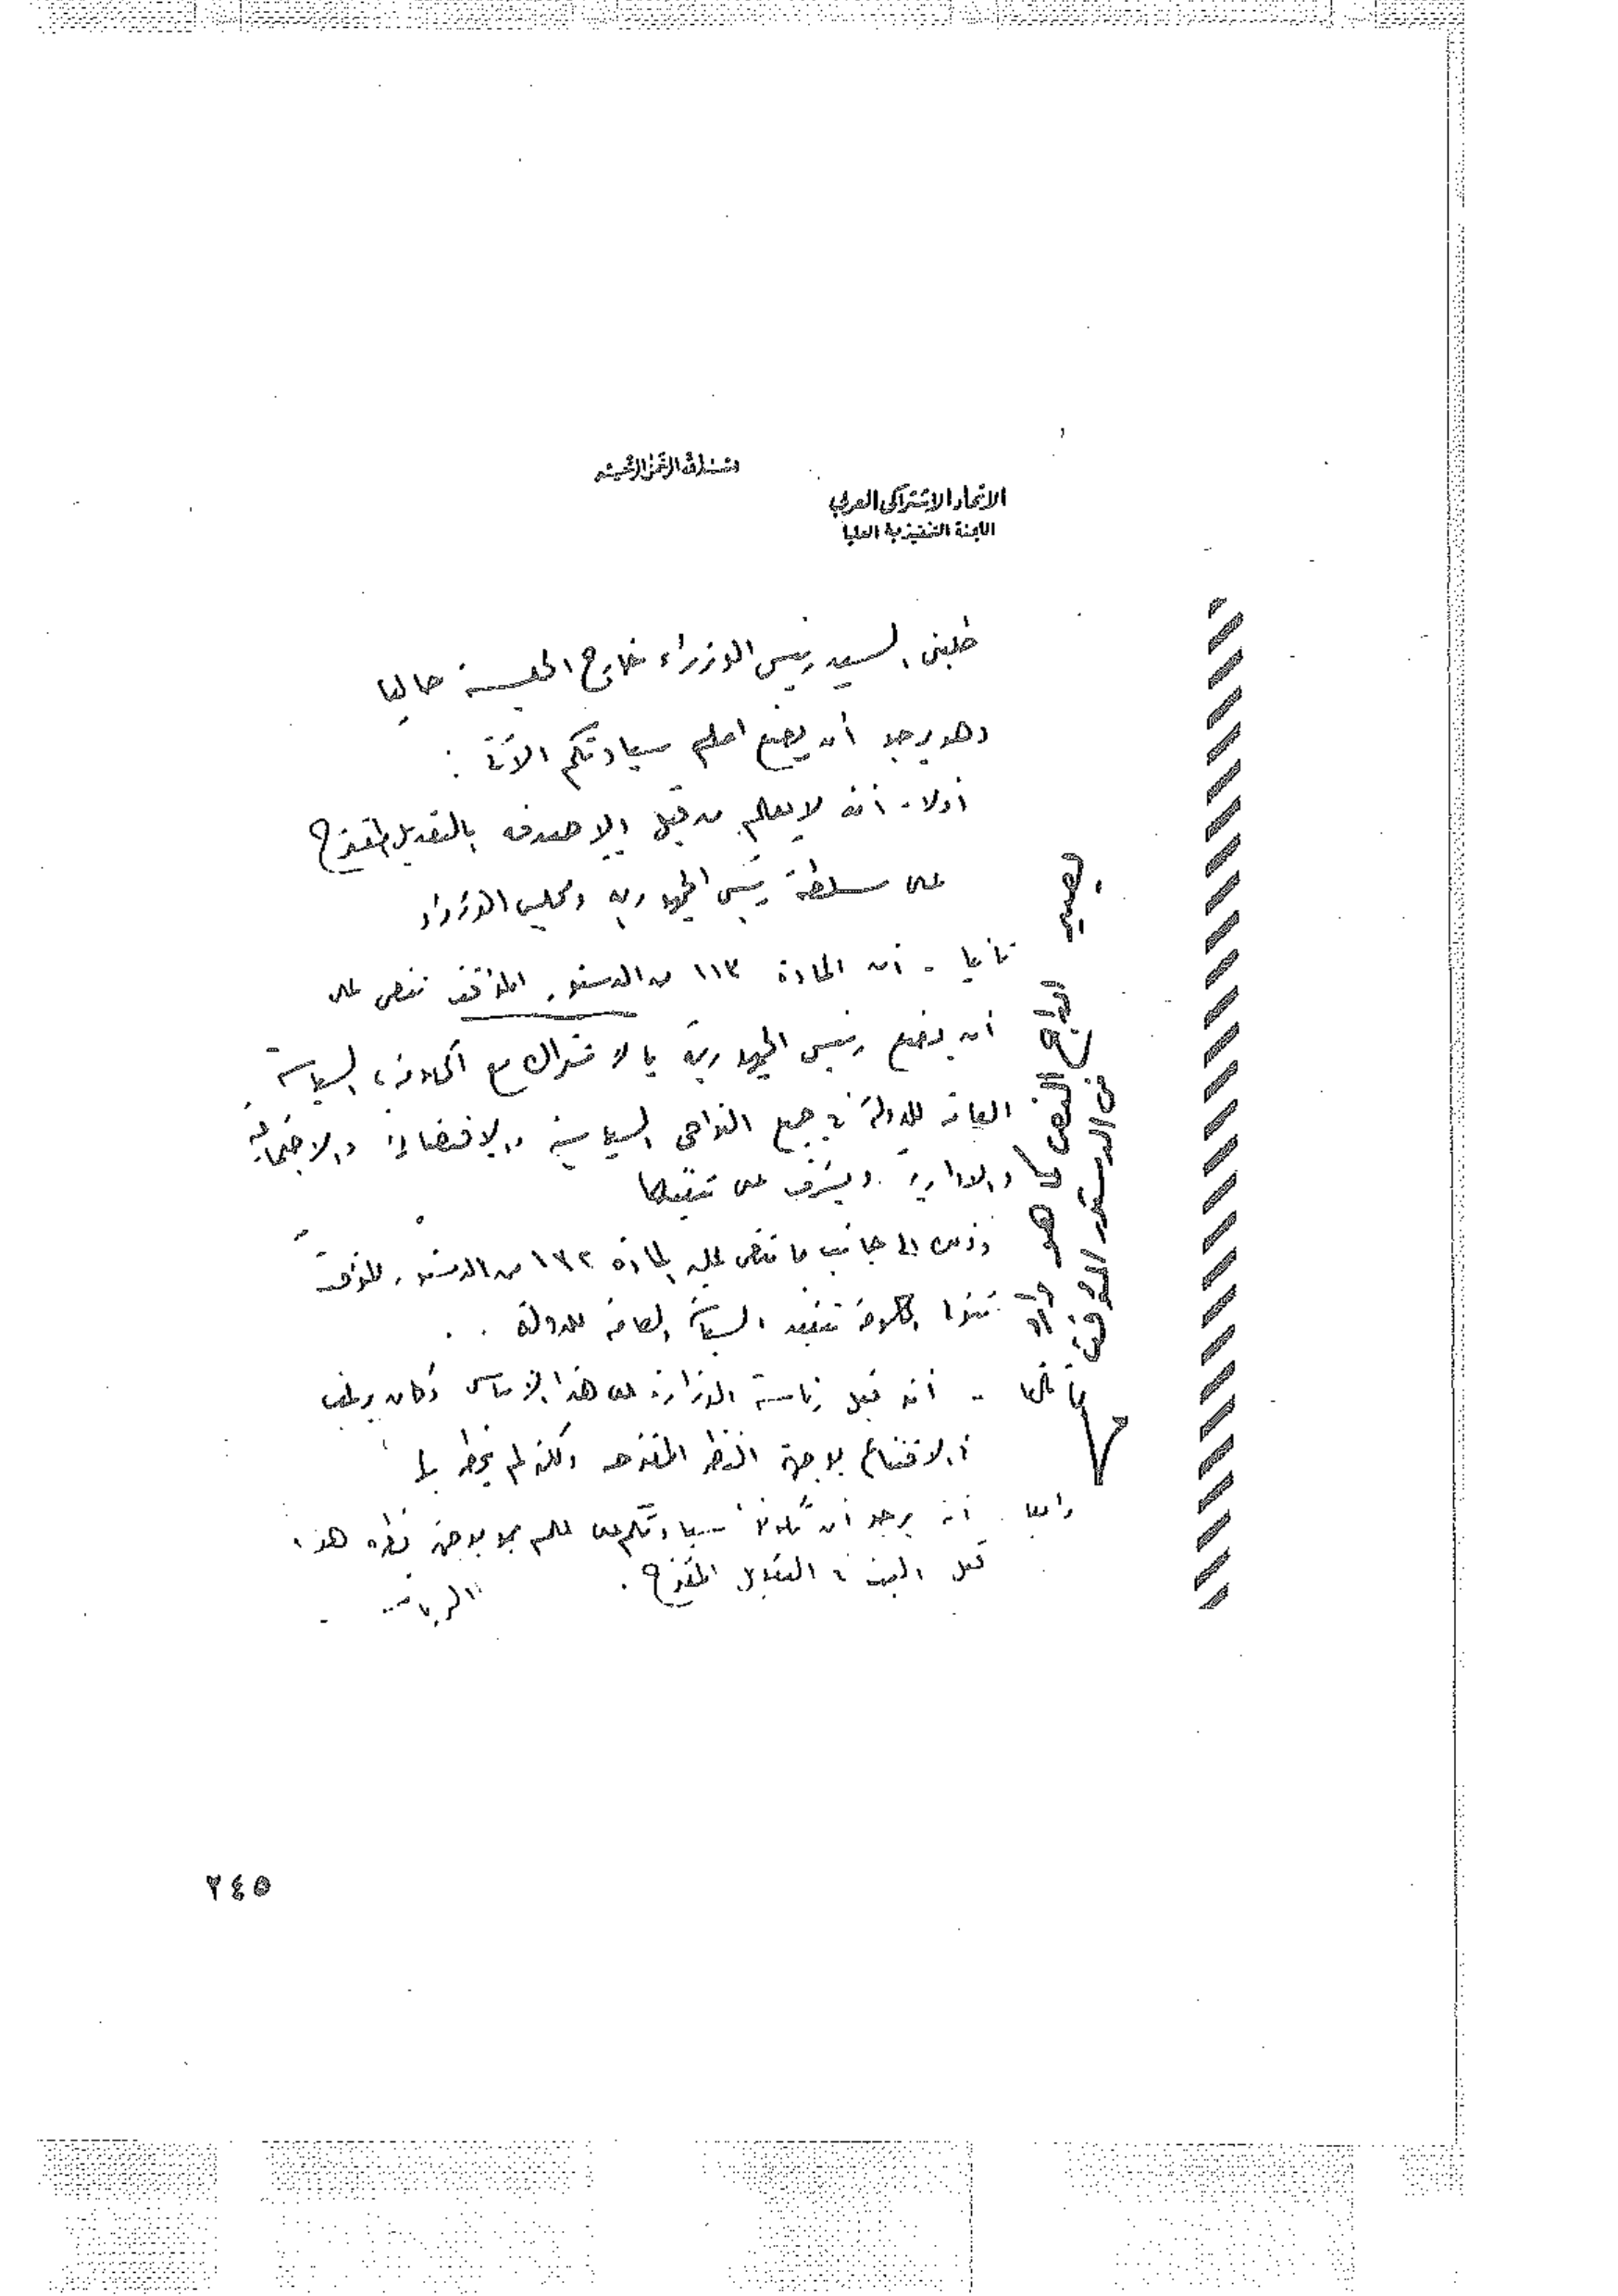 بسم الله الرحمن الرحيم
الاتحاد الاشتراكى العربى
اللجنة التنفيذية العليا
طلبنى السيد رئيس الوزراء خارج الجلسة حاليا
وهو يرجو أن يضع أمام سيادتكم الآتى :
أولا - أنه لا يعلم من قبل إلا صدفة بالتعديل المقترح
على سلطة رئيس الجمهورية ومجلس الوزراء
ثانيا - أن المادة ١١٣ من الدستور المؤقت تنص على
أن يضع رئيس الجمهورية بالاشتراك مع الحكومة، السياسة
العامة للدولة فى جميع النواحى السياسية والاقتصادية والاجتماعية
والادارية . ويشرف على تنفيذها
وذلك إلى جانب ما تنص عليه المادة ١٢٢ من الدستور المؤقت
تتولى الحكومة تنفيذ السياسة العامة للدولة . .
ثالثا - أنه قبل رئاسة الوزارة على هذا الأساس وكان يطلب
الاقتناع بوجهة النظر المقترحة ولكنه لم يخطر بها
رابعا . أنه يرجو أن تكونوا سيادتكم على علم بوجهة نظره هذه
قبل البت فى التعديل المقترح .
يصير
ادراج النص كما هو وارد
فى الدستور المؤقت
٢٤٥